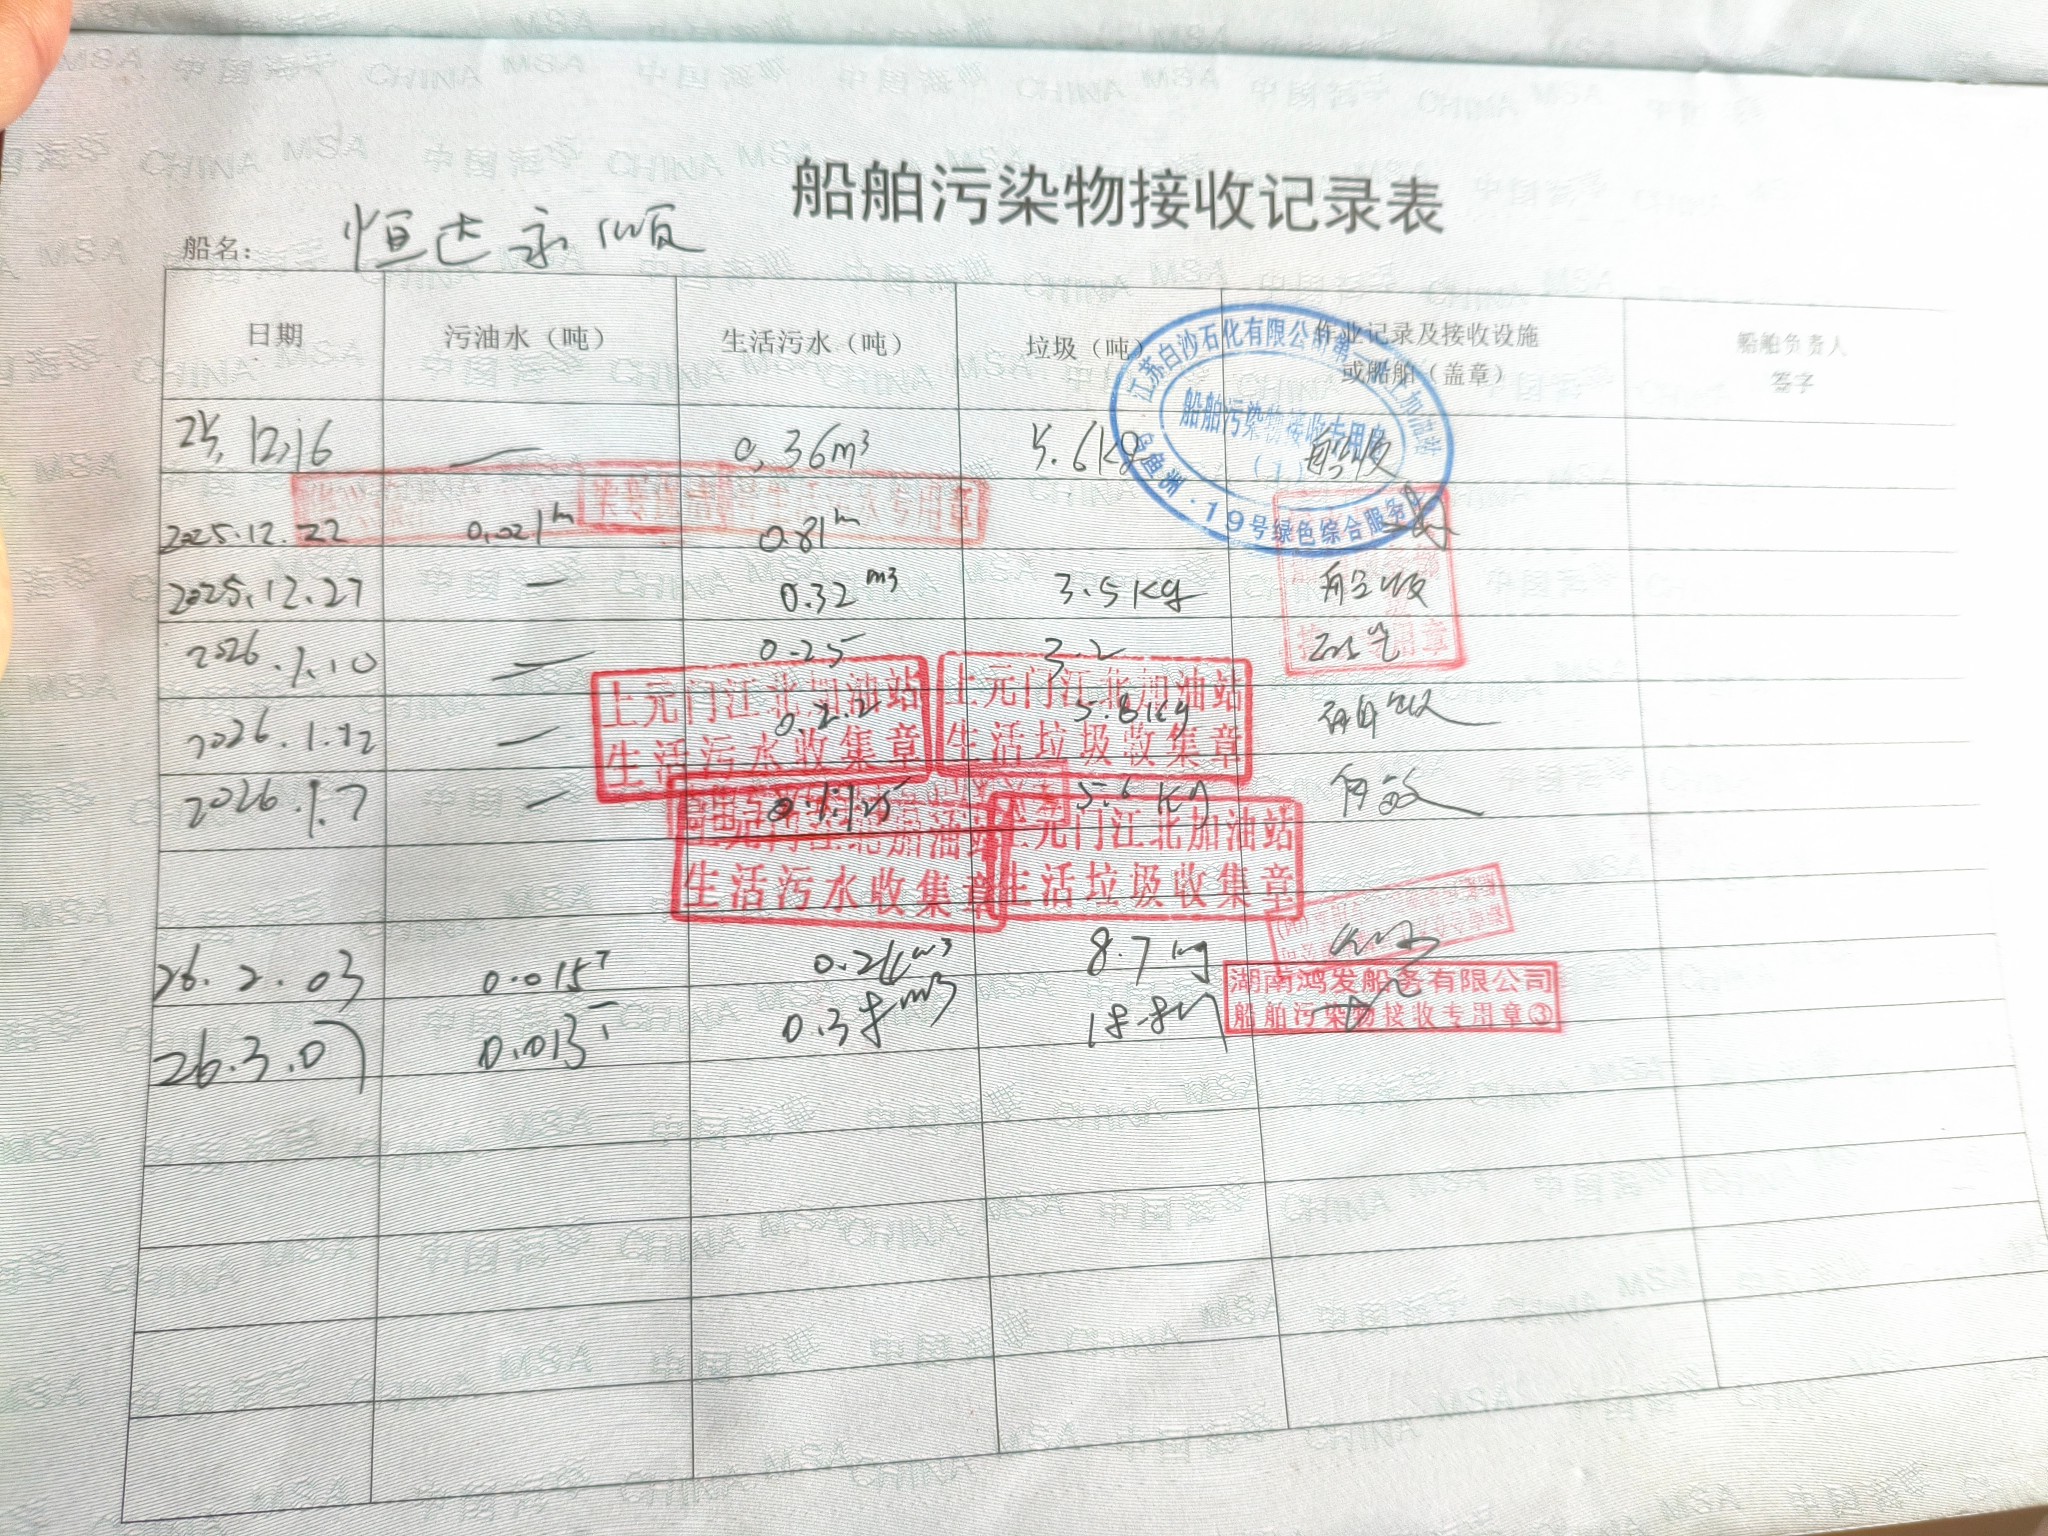 船舶污染物接收记录表
船名： 恒达永顺
日期 污油水（吨） 生活污水（吨） 垃圾（吨） 作业记录及接收设施或船舶（盖章） 船舶负责人签字
江苏白沙石化有限公司第一 加油站
船舶污染物接收专用章
（1）
鱼洲·19号绿色综合服务
25.12.16 — 0.36m³ 5.6kg
专用章
2025.12.22 0.021m 0.81m
2025.12.27 — 0.32m3 3.5Kg
2026.1.10 — 0.25 3.2
用章
上元门江北加油站
生活污水收集章
上元门江北加油站
生活垃圾收集章
2026.1.12 — 0.22 5.8Kg
2026.1.7 — 5.6Kg
上元门江北加油站
生活污水收集章
上元门江北加油站
生活垃圾收集章
26.2.03 0.015T 8.7kg
湖南鸿发船务有限公司
船舶污染物接收专用章③
26.3.07 0.013T 0.38m3 18.8
中国海事 CHINA MSA